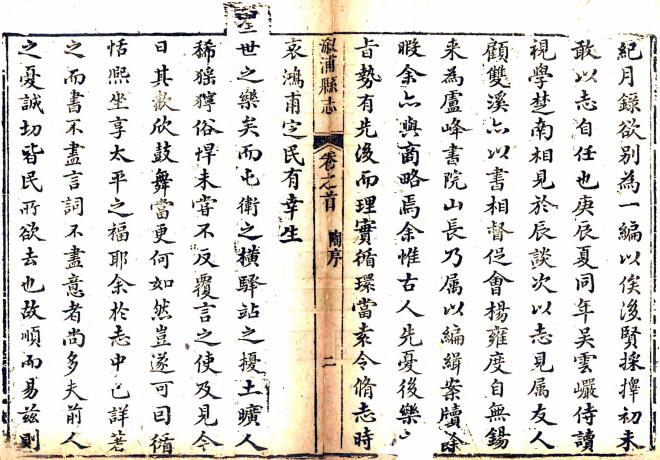 紀月錄欲別為一編以俟後賢採擇初未
敢以志自任也庚辰夏同年吳雲巖侍讀
視學楚南相見於辰談次以志見属友人
顧雙溪亦以書相督促會楊雍度自無錫
来為盧峰書院山長乃属以編緝案牘餘
暇余亦與商略焉余惟古人先憂後樂
旨勢有先後而理實循環當袁令脩志時
哀鴻甫定民有幸生
溆浦縣志
卷之首
陶序
二
世之樂矣而屯衛之橫驛站之擾土曠人
稀猺獞俗悍未甞不反覆言之使及見今
日其歡欣鼓舞當更何如然豈遂可曰循
恬熙坐享太平之福耶余於志中已詳著
之而書不盡言詞不盡意者尚多夫前人
之憂誠切皆民所欲去也故順而易兹則